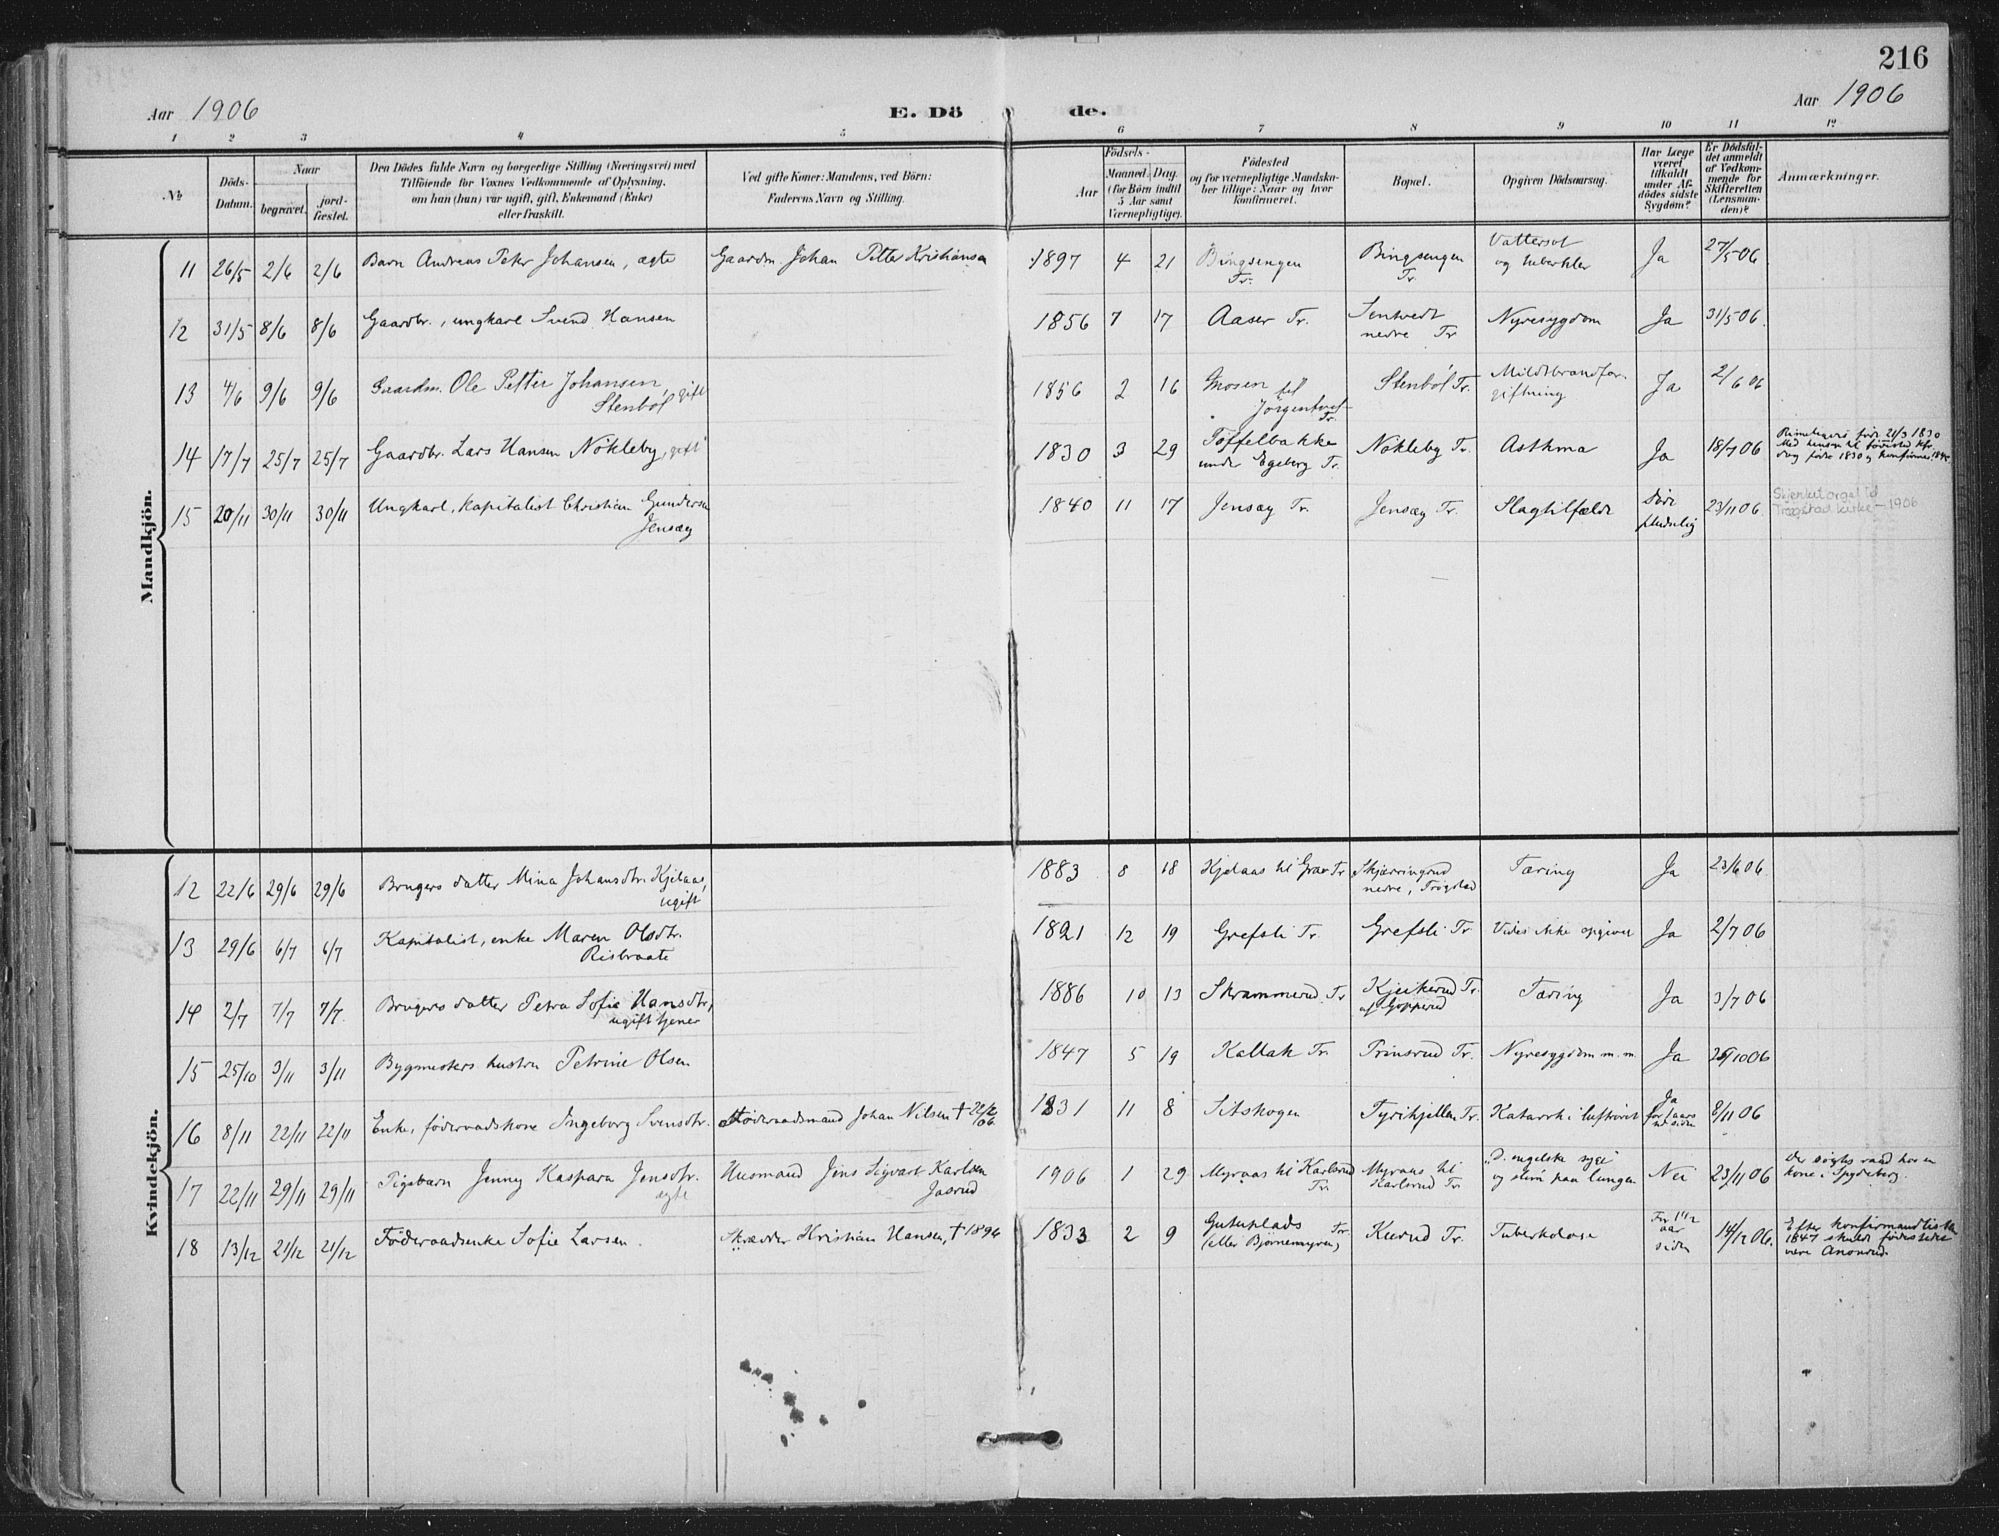 216
Aar 1906
E. Dö
de.
Aar 1906
1 2 3 4 5 6 7 8 9 10 11 12
№
Döds-
Datum.
Naar
begravet.
jord-
fæstet.
Den Dödes fulde Navn og borgerlige Stilling (Næringsvei) med
Tilföiende for Voxnes Vedkommende af Oplysning,
om han (hun) var ugift, gift, Enkemand (Enke)
eller fraskilt.
Ved gifte Koner: Mandens, ved Börn:
Faderens Navn og Stilling.
Födsels-
Aar
Maaned. Dag.
(for Börn indtil
5 Aar samt
Værnepligtige).
Födested
og for værnepligtige Mandska-
ber tillige: Naar og hvor
konfirmeret.
Bopæl.
Opgiven Dödsaarsag.
Har Læge
været
tilkaldt
under Af-
dödes sidste
Sygdom?
Er Dödsfal-
det anmeldt
af Vedkom-
mende for
Skifteretten
(Lensman-
den)?
Anmærkninger.
Mandkjön.
11 26/5 2/6 2/6 Barn Andreas Peter Johansen, ægte Gaardm. Johan Petter Kristiansen 1897 4 21 Bingsengen Tr. Bingsengen Tr. Vattersot og tuberkler Ja 27/5 06
12 31/5 8/6 8/6 Gaardbr., ungkarl Svend Hansen 1856 7 17 Aaser Tr. Sentvedt nedre Tr Nyresygdom Ja 31/5 06.
13 4/6 9/6 9/6 Gaardm. Ole Petter Johansen Stenböl gift 1856 2 16 Mosen til Tr. Stenböl Tr. Miltsbrandfor-giftning Ja 2/6 06
14 17/7 25/7 25/7 Gaardbr. Lars Hansen Nökleby, gift 1830 3 29 Töffelbakke under Egeberg Tr. Nökleby Tr. Asthma Ja 18/7 06 födt 21/3 1830
15 20/11 30/11 30/11 Ungkarl, kapitalist Christian Gundersen Jensæg 1840 11 17 Jensæg Tr. Jensæg Tr. Slagtilfælde Döde pludselig 23/11 06. Skjenket orgel til Trøgstad kirke - 1906
Kvindekjön.
12 22/6 29/6 29/6 Brugers datter Mina Johansdtr. Kjelaas, ugift 1883 8 18 Kjelaas til Grav Tr Skjærringrud nedre, Trögstad Tæring Ja 23/6 06
13 29/6 6/7 6/7 Kapitalist, enke Maren Olsdtr. Risbraate 1821 12 19 Grefsli Tr. Grefsli Tr Vides ikke opgivet Ja 2/7 06
14 2/7 7/7 7/7 Brugers datter Petra Sofie Hansdtr, ugift tjener 1886 10 13 Skrammerud Tr Kjeikerud Tr. Tæring Ja 3/7 06
15 25/10 3/11 3/11 Bygmesters hustru Petrine Olsen 1847 5 19 Kallak Tr. Prinsrud Tr. Nyresygdom m.m. Ja 26/10 06
16 8/11 22/11 22/11 Enke, föderaadskone Ingeborg Svensdtr. Föderaadsmand Johan Nilsen † 1831 11 8 Sitskogen Tyrihjellen Tr. Katarrh i luftröret Ja for 1 aars tid siden 8/11 06
17 22/11 29/11 29/11 Pigebarn Jenny Kaspara Jensdtr. egte Husmand Jens Sigvart Karlsen Jasrud 1906 1 29 Myraas til Karlsrud Tr. Myraas til Karlsrud Tr. "D. engelske syge" og slim paa lungen Nei 23/11 06 Der sögtes raad hos en kone i Spydeberg.
18 13/12 21/12 21/12 Föderaadsenke Sofie Larsen. Skrædder Kristian Hansen, † 1896 1833 2 9 Gutuplads Tr. (eller Björnemyren) Kurud Tr. Tuberkolose For 1 1/2 aar siden 14/12 06. Efter konfirmandliste 1847 skulde födestedet være Anonrud.